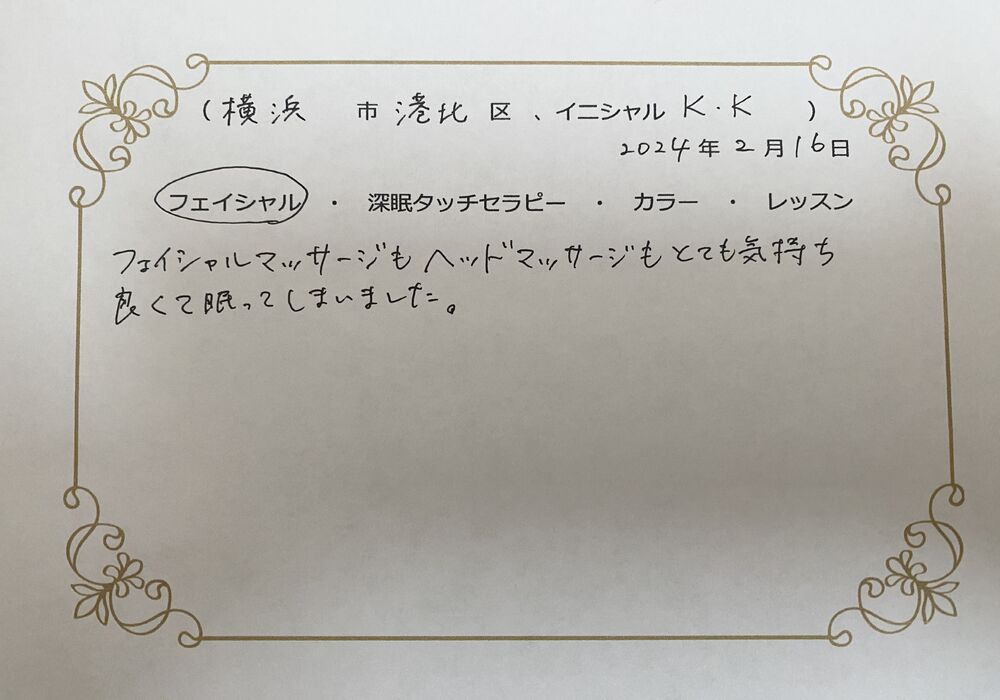 （横浜　市 港北 区 、イニシャル K・K　）
2024 年 2 月 16 日
フェイシャル ・ 深眠タッチセラピー ・ カラー ・ レッスン
フェイシャルマッサージもヘッドマッサージもとても気持ち
良くて眠ってしまいました。